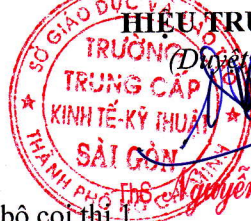 HIỆU TRƯ
(Duyệt
SỞ GIÁO DỤC VÀ
TRƯỜNG
TRUNG CẤP
KINH TẾ-KỸ THUẬT
SÀI GÒN
THÀNH PHỐ
ThS. Nguyễn
bộ coi thi 1